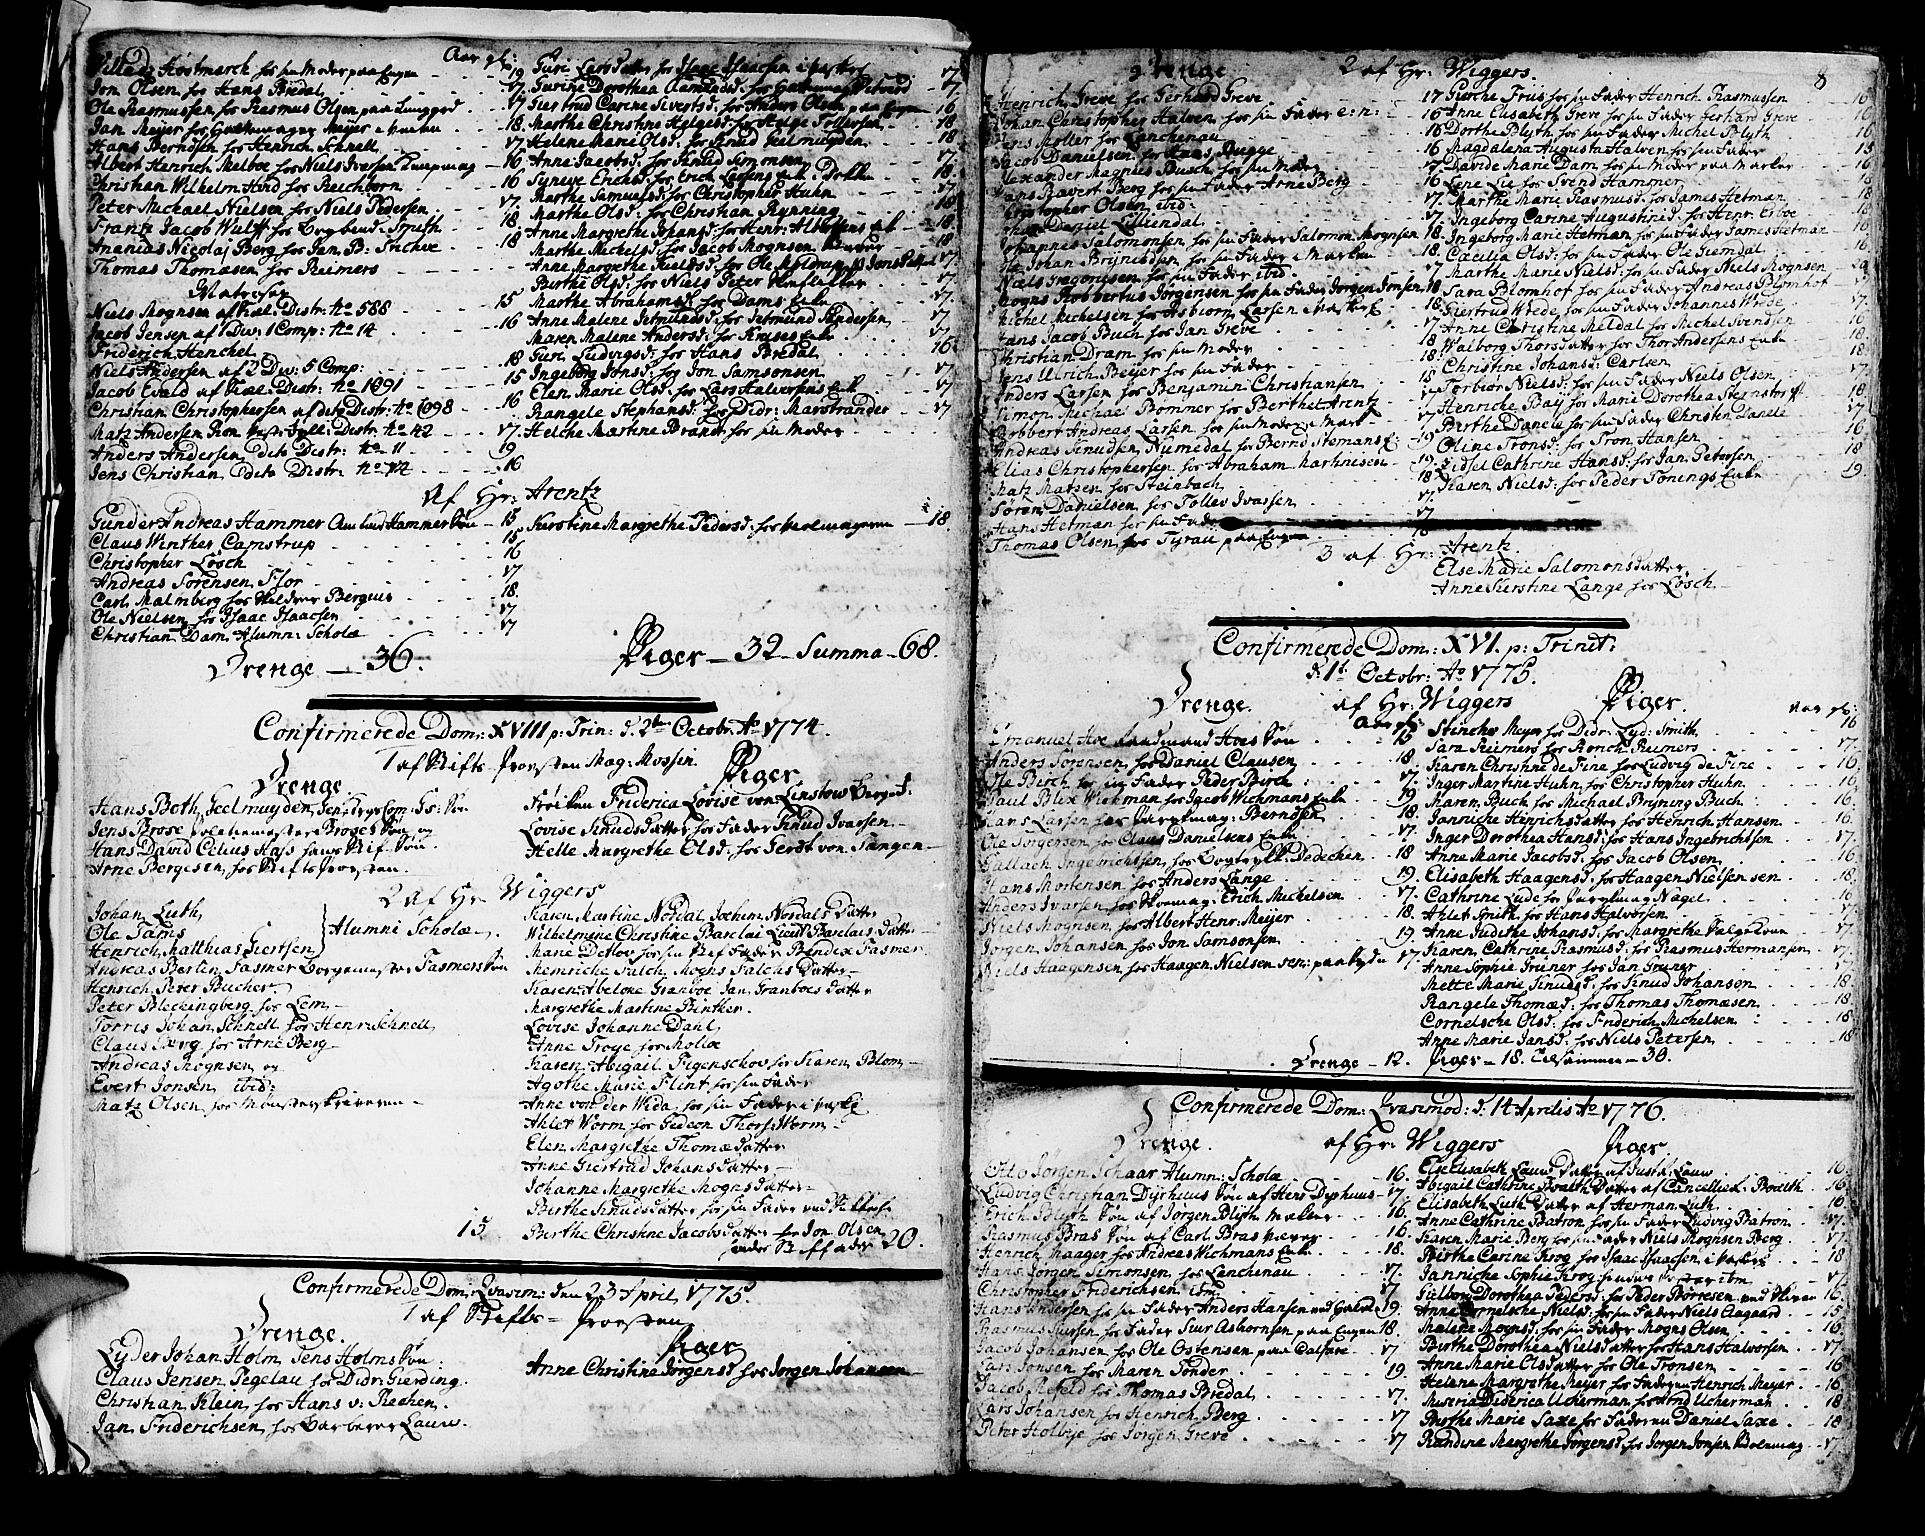 Aar gl:
Villads Hostmarck for sin Moder paa Engen 19
Jon Olsen for Hans Bredal 17
Ole Rasmussen for Rasmus Olsen paa Lunggord 17
Jan Meijer for Meijer 18
Hans Berndsen for Henrich Schnell 17
Albert Henrich Meltzoe for Niels Iversen 16
Christian Wilhelm Hind for Reichborn 16
Peter Michael Nielsen for Niels Pedersen 17
Frantz Jacob Wulff for Smith 18
Ananias Nicolaj Berg for Jan B: 18
Thomas Thomasen for Reimers
Matroser
Niels Mognsen af Distr: No 588 15
Jacob Jensen af 1 Div: 1 Comp: No 14 16
Friderich Henchel
Niels Andersen af 2 Div: 5 Comp: 18
Jacob Evald af Distr: No 1091 15
Christian Christophersen af dito Distr: No 1098 16
Matz Andersen Distr: No 42 17
Anders Andersen dito Distr: No 11 19
Jens Christian dito Distr: No 14 16
Guri Larsdatter for Isaac Isaachsen 17
Gurine Dorothea Aamundsd: for 17
Giertrud Carine Sivertsd: for Anders Olsen paa Engen 16
Marthe Christine Helgesd: for Helge Tollefsen 18
Helene Marie Olsd: for Knud Geelmuyden 18
Anne Jacobsd: for Knud Simonsen 17
Synneve Erichsd: for Erich Larsens Enke 18
Marthe Samuelsd: for Christopher Huhn 17
Marthe Olsd: for Christian Rynning 18
Anne Margrethe Johansd: for Henr: Albertsens 18
Marthe Michelsd: for Jacob Mognsen 18
Anne Margrethe Nielsd: for Ole 17
Birthe Olsd: for Niels Peter 17
Marthe Abrahamsd: for Dams Enke 17
Anne Malene Jetmundsd: for Jetmund Andersen 17
Maren Malene Andersd: for Kruses Enke 17
Guri Ludvigsd: for Hans Bredal 16
Ingeborg Jonsd: for Jon Samsonsen 17
Elen Marie Olsd: for Lars Halvorsens Enke 17
Rangele Stephansd: for Didr: Marstrander 17
Helche Martine Brandt for sin Moder
af Hr: Arentz
Gunder Andreas Hammer Hammers Søn 15
Claus Winther Camstrup 15
Christopher Losch 16
Andreas Sørensen Flor 17
Carl Malmberg for Bergius 18
Ole Nielsen for Isaac Isaachsen 17
Christian Dam Alumn: Scholæ 17
Kirstine Margrethe Pedersd: for 18
Drenge — 36.
Piger — 32 — Summa — 68.
Confirmerede Dom: XVIII p: Trin: d: 2den Octobr: Ao 1774.
1 af Stifts Provsten Mag: Mossin
Drenge
Hans Both Geelmuyden
Jens Brose Broses Søn og
Hans David Celius Hass
Arne Bergesen for Stifts Provsten
Piger
Frøiken Friderica Lovise von Linstow
Lovise Knudsdatter for Fader Knud Ivarsen
Helle Margrethe Olsd: for Gerdt von Tangen
2 af Hr: Wiggers
Johan Luth
Ole Tams
Henrich Matthias Giertsen
Alumni Scholæ
Andreas Berlin Fasmer Borgemester Fasmers Søn
Henrich Peter Bucher
Peter Bleckingberg for Lem
Torris Johan Schnell for Henr: Schnell
Claus Berg for Arne Berg
Andreas Mognsen og
Evert Jonsen ibid:
Matz Olsen for
15
Karen Martine Nordal Jochem Nordals Datter
Wilhelmine Christine Barclai Lieut: Barclais Datter
Marie Detlov for sin Stif Fader Brendix Fasmer
Henriche Falch Mogns Falchs Datter
Karen Abelone Granboe Jan Granboes Datter
Margrethe Martine Rinther
Lovise Johanne Dahl
Anne Troye for Mollæ
Karen Abigail Figenschov for Karen Blom
Agothe Marie Flint for sin Fader
Anne von der Wida for sin Fader
Ahlet Worm for Gedeon Thors Worm
Elen Margrethe Thomædatter
Anne Giertrud Johansdatter
Johanne Margrethe Mognsdatter
Birthe Knudsdatter for sin Fader
Birthe Christine Jacobsdatter for Jon Olsen
20.
Confirmerede Dom: Qvasim: den 23 April 1775.
1 af Stifts-Provsten
Drenge
Lyder Johan Holm Jens Holms Søn
Claus Jensen Pegelau for Didr: Gierding.
Christian Klein for Hans v: Rechen
Jan Friderichsen for Lauw.
Piger
Anne Christine Jørgensd: for Jørgen Johansen
8
Drenge
2 af Hr: Wiggers.
Henrich Greve for Gerhard Greve 17
Johan Christopher Halven for sin Fader 16
Jens Møller for Lenchenau 16
Jacob Danielsen for Hans Bugge 16
Alexander Magnus Busch for sin Moder 17
Hans Bavert Berg for sin Fader Arne Berg 16
Christopher Olsen ibid:
Johan Daniel Lilliendal 17
Johannes Salomonsen for sin Fader Salomon Mognsen 18
Ole Johan Brynildsen for sin Fader 18
Niels Gregoriusen for sin Fader ibid. 17
Mogns Robbertus Jørgensen for sin Fader Jørgen Jonsen 18
Michel Michelsen for Asbiorn Larsen 18
Hans Jacob Buch for Jan Greve 17
Christian Dram for sin Moder 18
Jens Ulrich Beijer for sin Fader 18
Anders Larsen for Benjamin Christiansen 18
Simon Michael Bommer for Berthel Arentz 17
Robbert Andreas Larsen for sin Moder 17
Andreas Knudsen Numedal for Bernd Stemans E: 19
Elias Christophersen for Abraham Martinisen 19
Matz Matsen for Steinbach 18
Søren Danielsen for Tollev Ivarsen 17
Hans Hetman for sin Fader 17
Thomas Olsen for Tyrau paa Engen
Giørche Friis for sin Fader Henrich Rasmussen 16
Anne Elisabeth Greve for sin Fader Gerhard Greve 16
Dorthe Blyth for sin Fader Michel Blyth 16
Magdalena Augusta Halven for sin Fader 15
Davide Marie Dam for sin Moder 16
Lene Lie for Svend Hammer 16
Marthe Marie Rasmusd: for James Hetman 18
Ingeborg Carine Augustinid: for Henr: Esboe 18
Ingeborg Marie Hetman for sin Fader James Hetman 16
Cæcilia Olsd: for sin Fader Ole Giemdal 16
Marthe Marie Nielsd: for sin Fader Niels Mognsen 20
Sara Blomhof for sin Fader Andreas Blomhof 17
Giertrud Wrede for sin Fader Johannes Wrede 17
Anne Christine Meldal for Michel Svendsen 16
Walborg Thorsdatter for Thor Andersens Enke 18
Christine Johansd: Carlsen 18
Torbior Nielsd: for sin Fader Niels Olsen 17
Henriche Baij for Marie Dorothea Steenstorff 18
Birthe Danele for sin Fader Christen Danele 17
Oline Tronsd: for Tron Hansen 17
Zidsel Cathrine Hansd: for Jan Petersen 18
Karen Nielsd: for Peder Tonings Enke 19
3 af Hr: Arentz.
Else Marie Salomonsdatter
Anne Kierstine Lange for Losch
Confirmerede Dom: XVI. p: Trinit:
d: 1t Octobr: Ao 1775.
af Hr: Wiggers
Drenge.
Aar gl:
Emanuel Hoe Hoes Søn 15
Anders Sørensen for Daniel Clausen 18
Ole Birch for sin Fader Peder Birch 17
Paul Blix Wichman for Jacob Wichmans Enke 19
Lars Larsen for Berndsen 18
Ole Jørgensen for Claus Danielsens Enke 17
Gullach Ingebrichtsen for Dedechen 18
Hans Mortensen for Anders Lange 19
Anders Ivarsen for Erich Michelsen 17
Niels Mognsen for Albert Henr: Meijer 18
Jørgen Johansen for Jon Samsonsen 19
Niels Haagensen for Haagen Nielsen sen: 17
Piger.
Aar gl:
Stinche Meyer for Didr: Lyd: Smith 16
Sara Reimers for Ronch Reimers 17
Karen Christine de Fine for Ludvig de Fine 16
Inger Martine Huhn for Christopher Huhn 16
Maren Buch for Michael Bryning Buch 16
Janniche Henrichsdatter for Henrich Hansen 16
Inger Dorothea Hansd: for Hans Ingebrichtsen 17
Anne Marie Jacobsd: for Jacob Olsen 16
Elisabeth Haagensd: for Haagen Nielsen sen 18
Cathrine Lude for Nagel 16
Ahlet Smith for Hans Halvorsen 17
Anne Judithe Johansd: for Margrethe 17
Karen Cathrine Rasmusd: for Rasmus Hermansen 17
Anne Sophie Gruner for Jan Gruner 17
Mette Marie Knudsd: for Knud Johansen 18
Rangela Thomæd: for Thomas Thomæsen 18
Cornelsche Olsd: for Friderich Michelsen 18
Anne Marie Jansd: for Niels Petersen 18
Drenge — 12. Piger — 18. Tilsammen — 30.
Confirmerede Dom: Qvasimod: d: 14 Aprilis Ao 1776.
af Hr: Wiggers
Drenge.
Otto Jørgen Schaar Alumn: Scholæ 16
Ludvig Christian Dyrhuus Søn af Hans Dyrhuus 17
Erich Blyth Søn af Jørgen Blyth Maler 16
Rasmus Bras Søn af Carl Bras 16
Henrich Haager for Andreas Wichmans Enke 18
Hans Jørgen Simonsen for Lenchenau 17
Christopher Friderichsen ibm: 17
Hans Andersen for sin Fader Anders Hansen 19
Rasmus Siursen for Fader Siur Asbornsen paa Engen 18
Jacob Johansen for Ole Ostensen paa Calfare 17
Lars Jonsen for Maren Tønder 19
Jacob Refeld for Thomas Bredal 17
Lars Johansen for Henrich Berg 17
Peter Holbye for Jørgen Greve 17
Piger
Else Elisabeth Lauw Datter af Justr: Lauw 16
Abigail Cathrine Boalth Datter af Cancellier: Boalth 16
Elisabeth Luth Datter af Herman Luth 16
Anne Cathrine Batron for sin Fader Ludvig Batron 17
Karen Marie Berg for sin Fader Niels Mognsen Berg 17
Birthe Carine Krog for Isaac Isaachsen 18
Janniche Sophie Krog ibm 17
Gulborg Dorothea Pedersd: for Peder Børresen 16
Anne Cornelsche Nielsd: for sin Fader Niels Aagaard 15
Malene Mognsd: for sin Fader Mogns Olsen 16
Birthe Dorothea Nielsdatter for Hans Halvorsen 17
Anne Marie Olsdatter for Ole Tronsen 16
Helene Margrethe Meyer for Faderen Henrich Meyer 16
Museria Diderica Ucherman for Arnd Ucherman 18
Birthe Marie Saxe for Faderen Daniel Saxe 18
Randine Margrethe Jørgensd: for Jørgen Jonsen 17